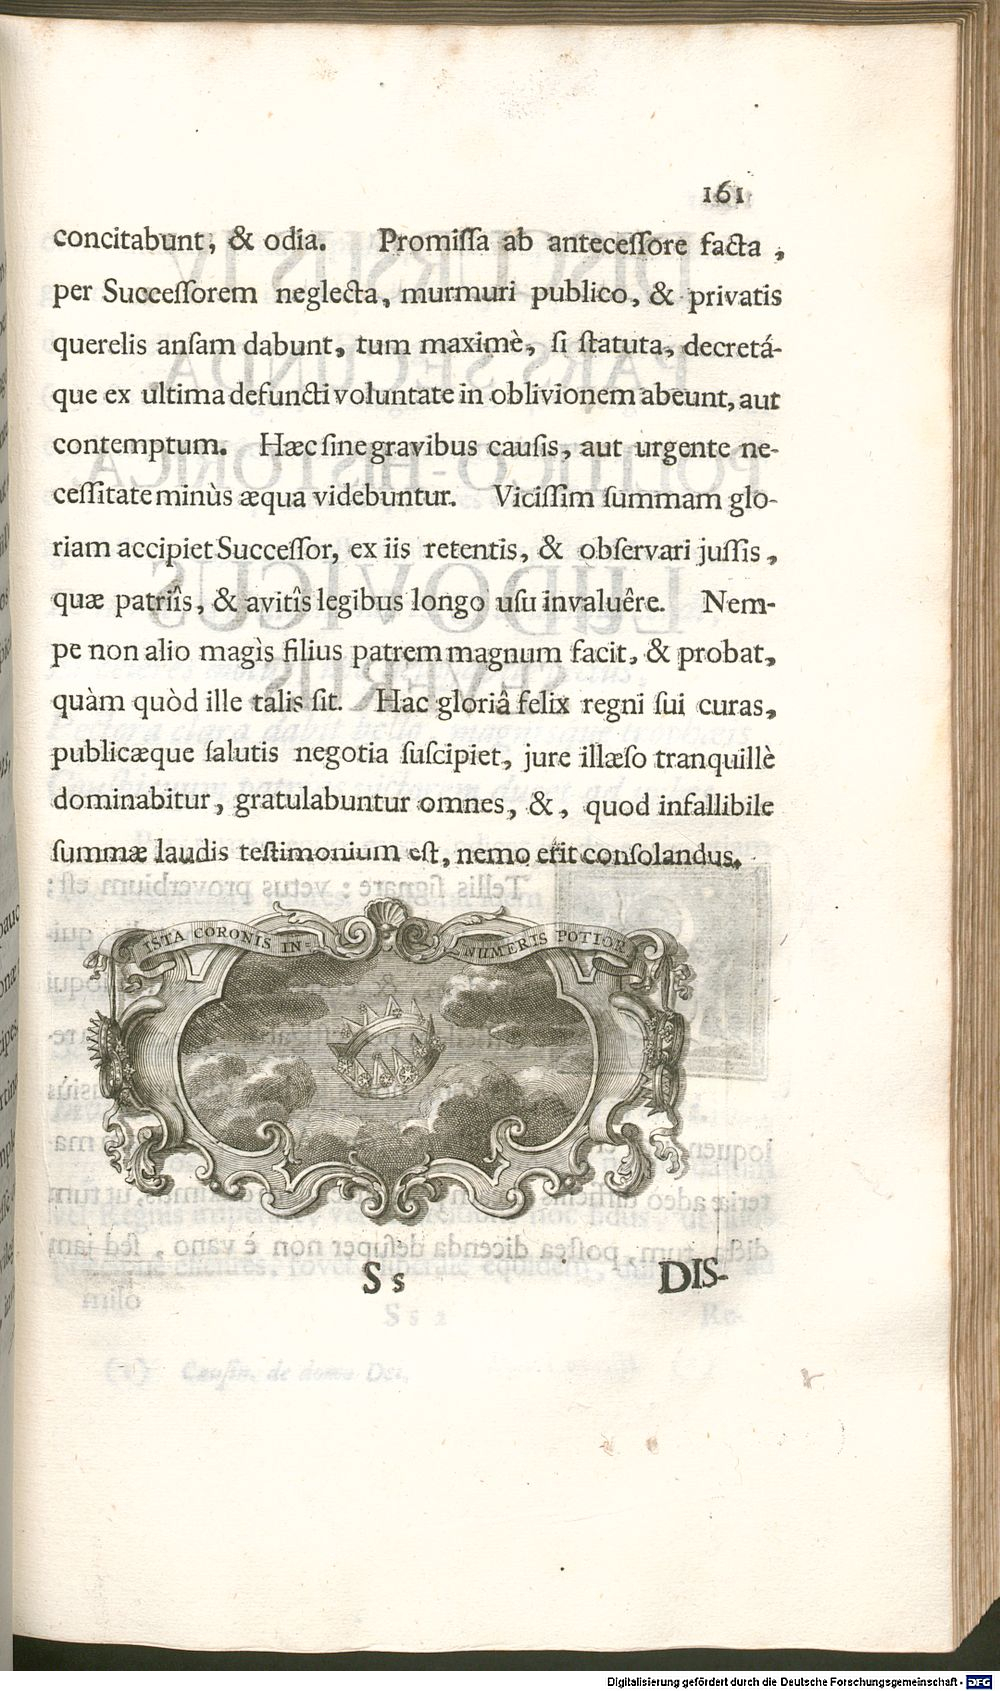 161
concitabunt, & odia. Promiſſa ab anteceſſore facta,
per Succeſſorem neglecta, murmuri publico, & privatis
querelis anſam dabunt, tum maximè, ſi ſtatuta, decretá-
que ex ultima defuncti voluntate in oblivionem abeunt, aut
contemptum. Hæc ſine gravibus cauſis, aut urgente ne-
ceſſitate minùs æqua videbuntur. Viciſſim ſummam glo-
riam accipiet Succeſſor, ex iis retentis, & obſervari juſſis,
quæ patriîs, & avitîs legibus longo uſu invaluêre. Nem-
pe non alio magìs filius patrem magnum facit, & probat,
quàm quòd ille talis ſit. Hac gloriâ felix regni ſui curas,
publicæque ſalutis negotia ſuſcipiet, jure illæſo tranquillè
dominabitur, gratulabuntur omnes, &, quod infallibile
ſummæ laudis teſtimonium eſt, nemo erit conſolandus.
ISTA CORONIS IN-
NUMERIS POTIOR
Ss
DIS-
Digitalisierung gefördert durch die Deutsche Forschungsgemeinschaft - DFG